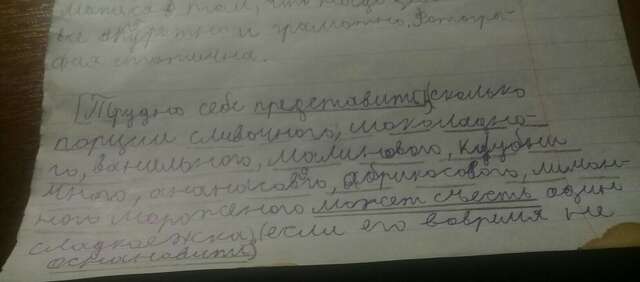 все аккуратно и грамотно. Фотогра-
фия отлична.
[Трудно себе представить], (сколько
порций сливочного, шоколадно-
го, ванильного, малинового, клубни
чного, ананасового, абрикосового, лимон-
ного мороженого может съесть один
сладкоежка), (если его вовремя не
остановить)